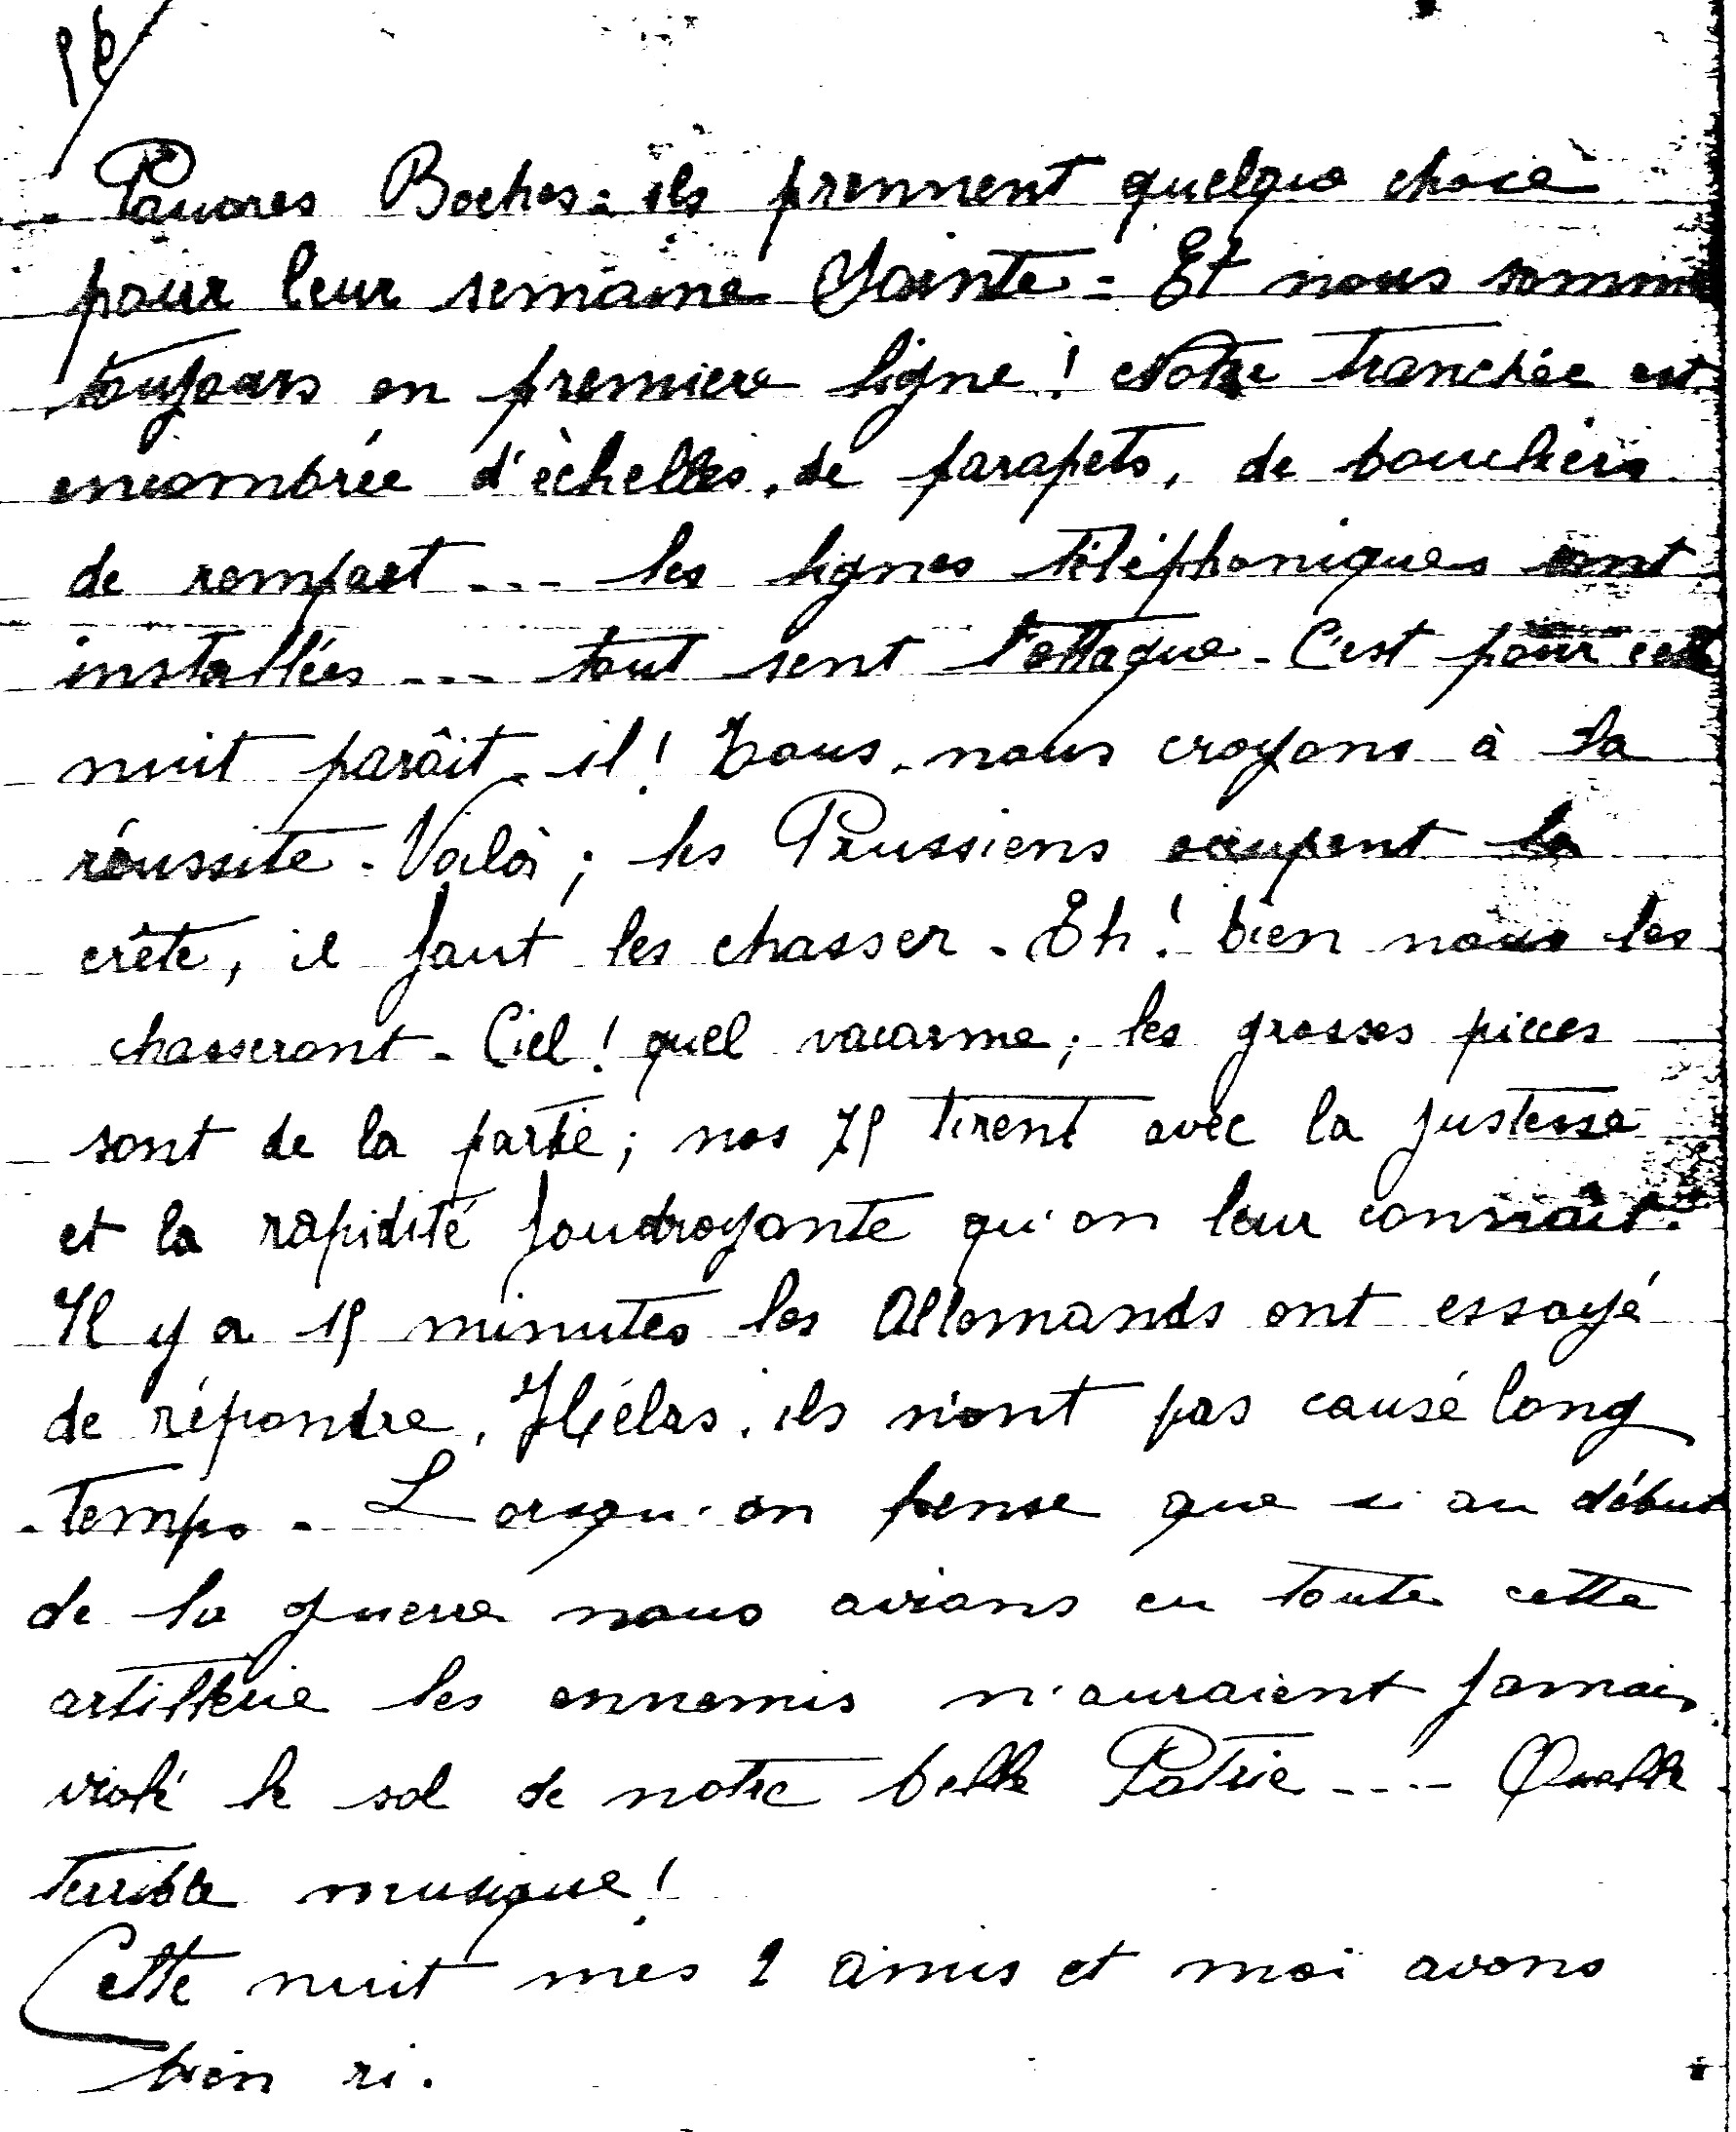 Pauvres Boches : ils prennent quelque chose
pour leur semaine Sainte - Et nous somme
toujours en premiere ligne ! Notre tranchée est
encombrée d'échelles, de parapets, de boucliers
de rempart ... les lignes téléphoniques sont
installées ... tout sent l'attaque - C'est pour cette
nuit parâit-il ! Tous, nous croyons à la
réussite - Voilà ; les Prussiens occupent la
crête, il faut les chasser - Eh ! bien nous les
chasseront - Ciel ! quel vacarme ; les grosses pièces
sont de la partie ; nos 75 tirent avec la justesse
et la rapidité foudroyante qu'on leur connaît.
Il y a 15 minutes les Allemands ont essayé
de répondre, Hélas, ils n'ont pas causé long
-temps - Lorsqu'on pense que si au début
de la guerre nous avions eu toute cette
artillerie les ennemis n'auraient jamais
violé le sol de notre belle Patrie .... Quelle
terrible musique !
Cette nuit mes 2 amis et moi avons
bien ri.